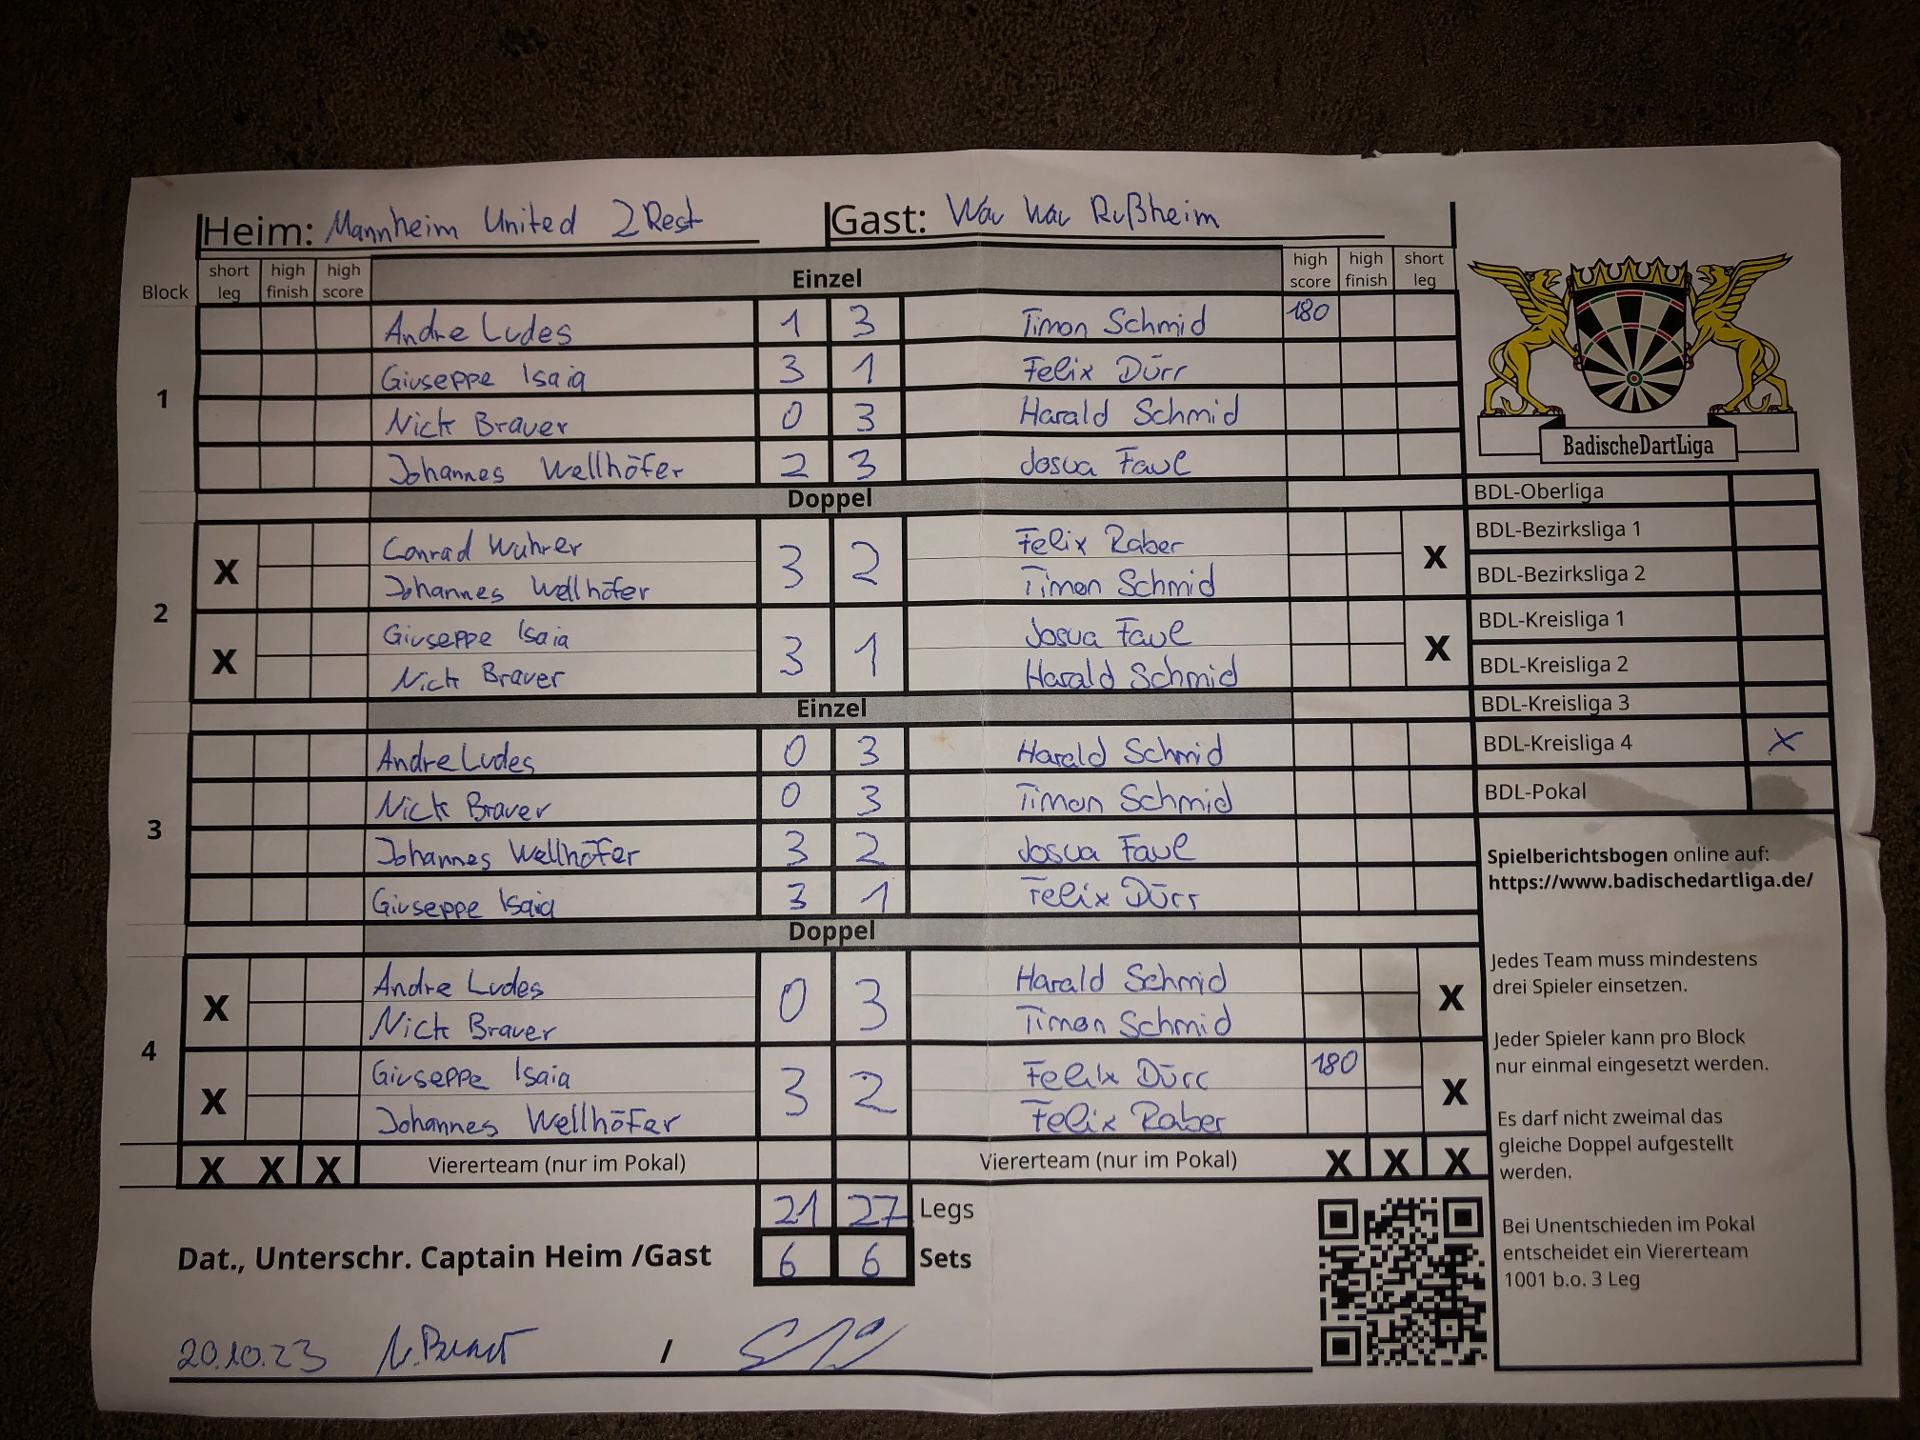 Heim: Mannheim United 2Rest Gast: Wau Wau Rußheim
Block short leg high finish high score Einzel high score high finish short leg
Andre Ludes 1 3 Timon Schmid 180
Giuseppe Isaia 3 1 Felix Dürr
1
Nick Brauer 0 3 Harald Schmid
Johannes Wellhöfer 2 3 Josua Faul
BadischeDartLiga
Doppel
Conrad Wuhrer Felix Raber
X 3 2 X
Johannes Wellhöfer Timon Schmid
2
Giuseppe Isaia Josua Faul
X 3 1 X
Nick Brauer Harald Schmid
Einzel
Andre Ludes 0 3 Harald Schmid
Nick Brauer 0 3 Timon Schmid
3
Johannes Wellhöfer 3 2 Josua Faul
Giuseppe Isaia 3 1 Felix Dürr
Doppel
Andre Ludes Harald Schmid
X 0 3 X
Nick Brauer Timon Schmid
4
Giuseppe Isaia Felix Dürr 180
X 3 2 X
Johannes Wellhöfer Felix Raber
X X X Viererteam (nur im Pokal) Viererteam (nur im Pokal) X X X
21 27 Legs
Dat., Unterschr. Captain Heim /Gast 6 6 Sets
20.10.23 /
BDL-Oberliga
BDL-Bezirksliga 1
BDL-Bezirksliga 2
BDL-Kreisliga 1
BDL-Kreisliga 2
BDL-Kreisliga 3
BDL-Kreisliga 4 X
BDL-Pokal
Spielberichtsbogen online auf:
https://www.badischedartliga.de/
Jedes Team muss mindestens
drei Spieler einsetzen.
Jeder Spieler kann pro Block
nur einmal eingesetzt werden.
Es darf nicht zweimal das
gleiche Doppel aufgestellt
werden.
Bei Unentschieden im Pokal
entscheidet ein Viererteam
1001 b.o. 3 Leg